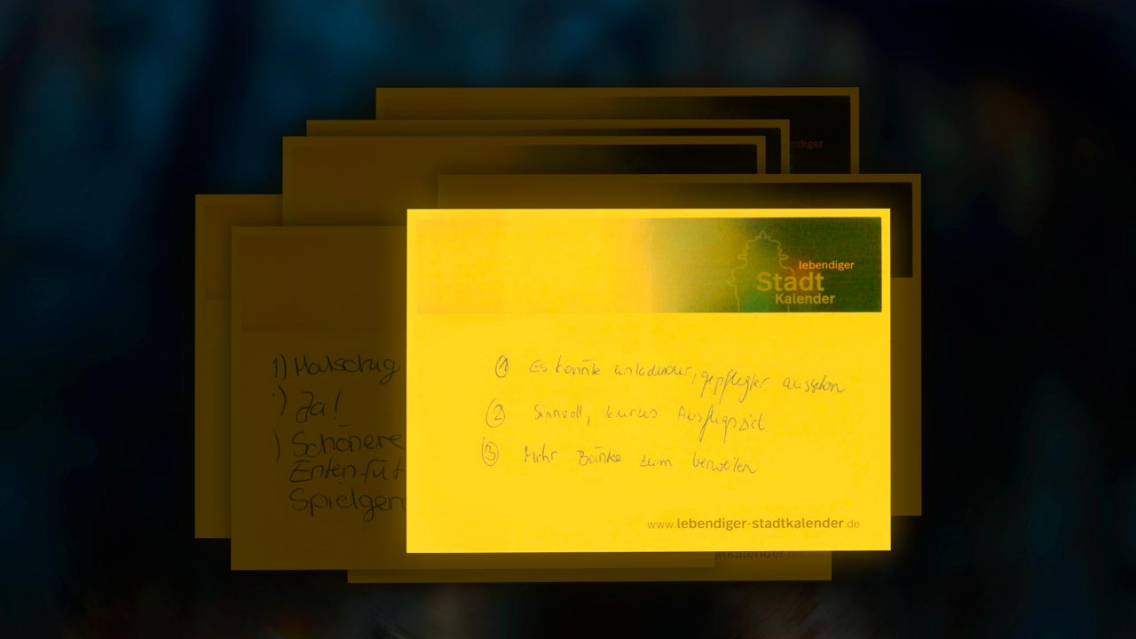 lebendiger
Stadt
Kalender
① Es könnte einladender, gepflegter aussehen
② Sinnvoll, kurzes Ausflugsziel
③ Mehr Bänke zum verweilen
www.lebendiger-stadtkalender.de
1) Matschig
) Ja!
) Schönere
Enten füt
Spielger